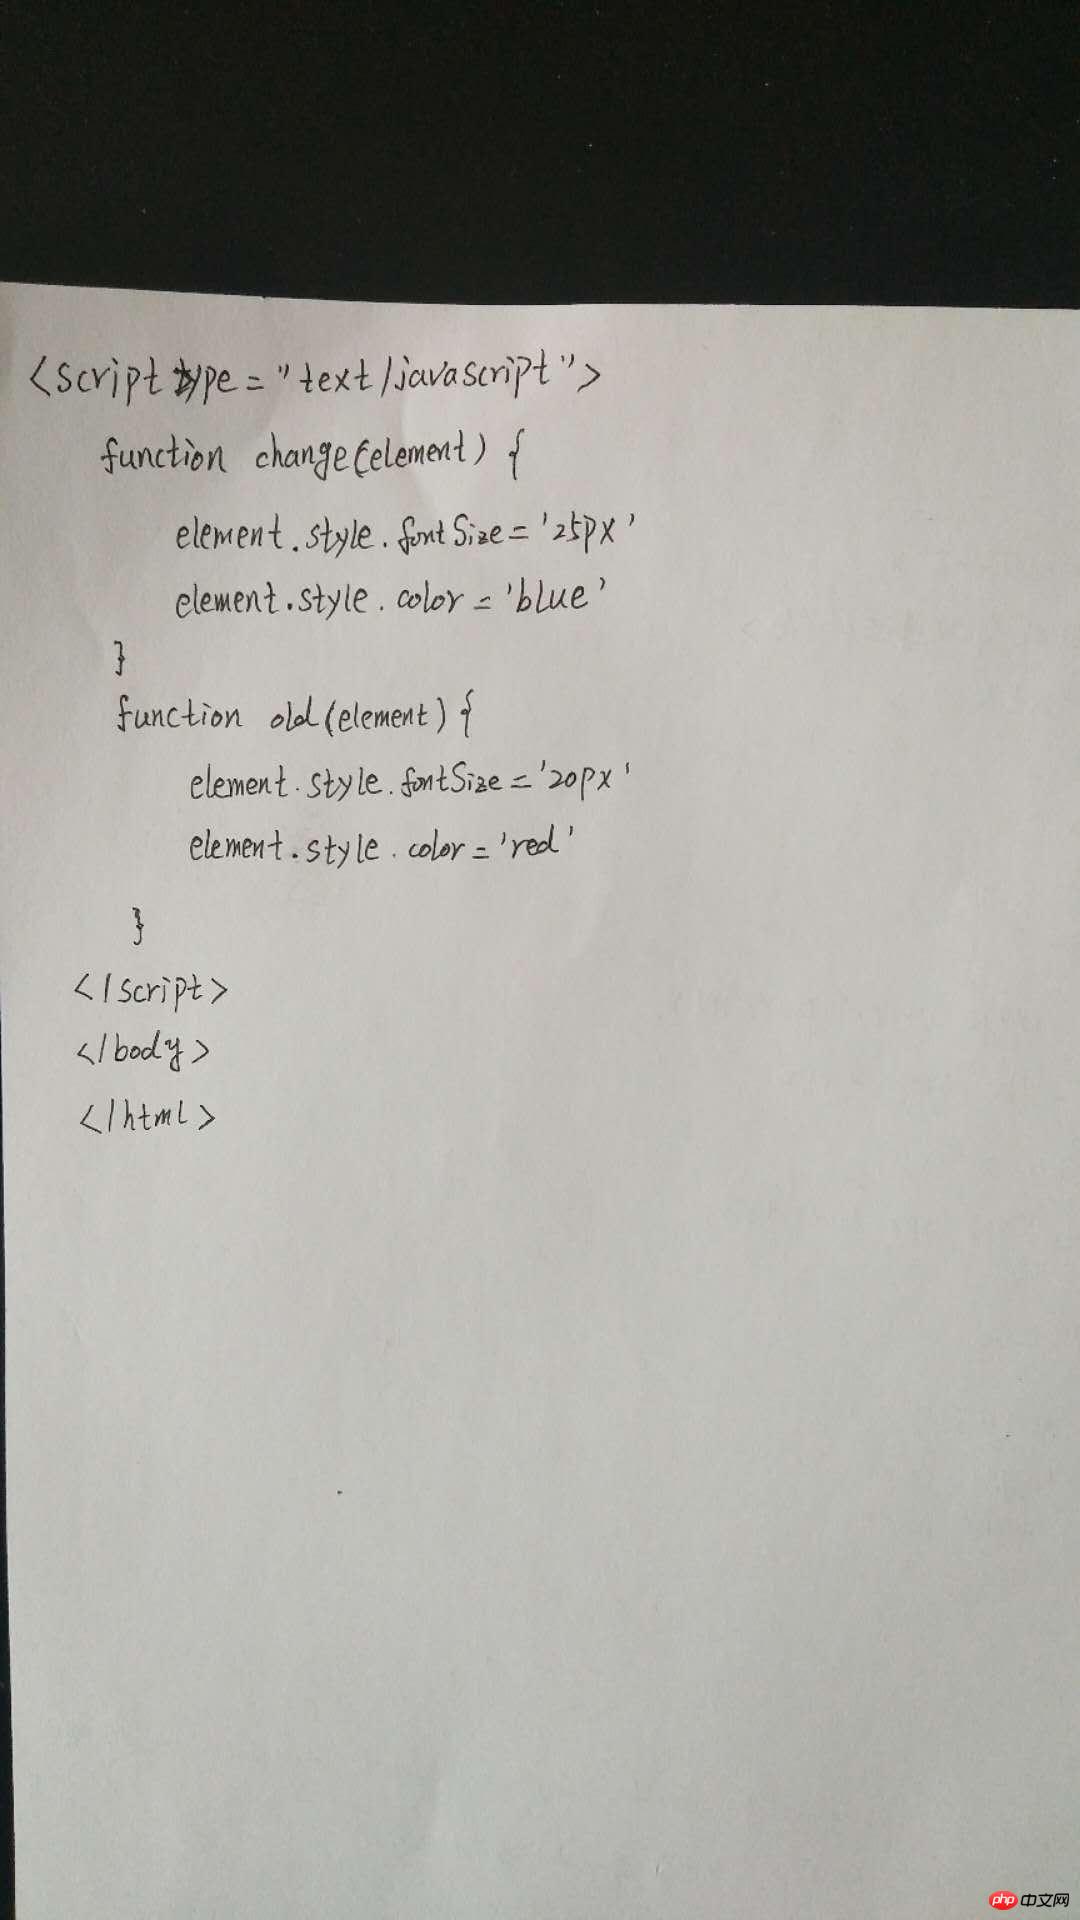 <script type="text/javascript">
function change(element) {
element.style.fontSize='25px'
element.style.color='blue'
}
function old(element){
element.style.fontSize='20px'
element.style.color='red'
}
</script>
</body>
</html>
php 中文网